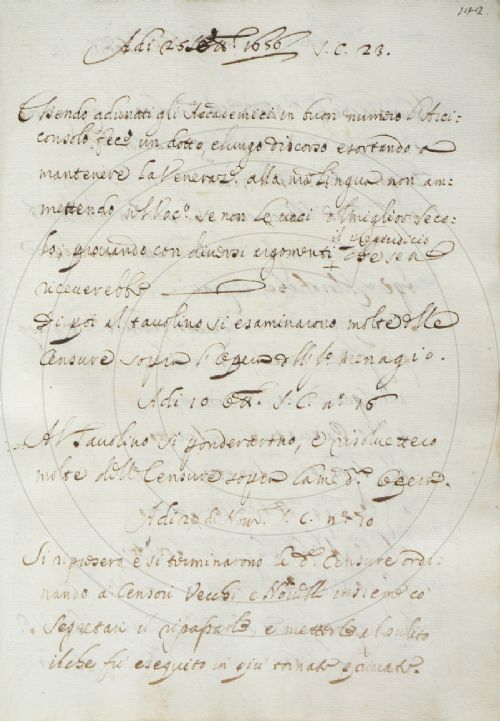 142.
Adi 25 1656 S. C. 23.
Essendo adunati gli Accademici in buon numero l'Arci=
consolo fece un dotto, e lungo discorso esortando a
mantenere la Veneraz.e alla n̄ra lingua non am=
mettendo nel Voc.o se non le voci del miglior seco=
lo, provando con diversi argomenti il pregiudicio che se ne
riceverebbe
Di poi al tavolino si esaminarono molte delle
Censure sopra l'opera del S.r Menagio.
Adi 10 S. C. n.o 16
Al Tavolino si ponderarono, e
molte delle Censure sopra la med.a opera.
Adi 20 di Nov.e S. C. n.o
Si ripresero, e si terminarono le d.e Censure ordi=
nando a Censori Vecchi e Novelli insieme co
Segretari il ripassarle, e metterle al pulito
il che fu eseguito in più tornate private.